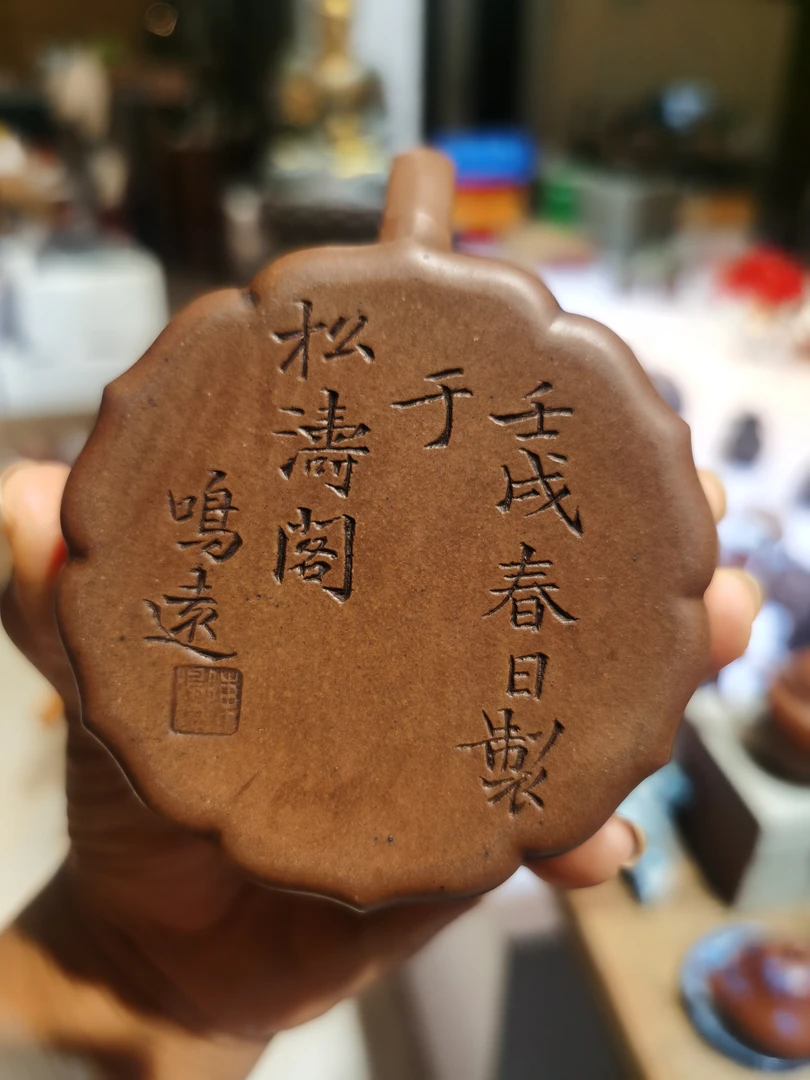 壬戌春日製
于
松濤閣
鳴遠